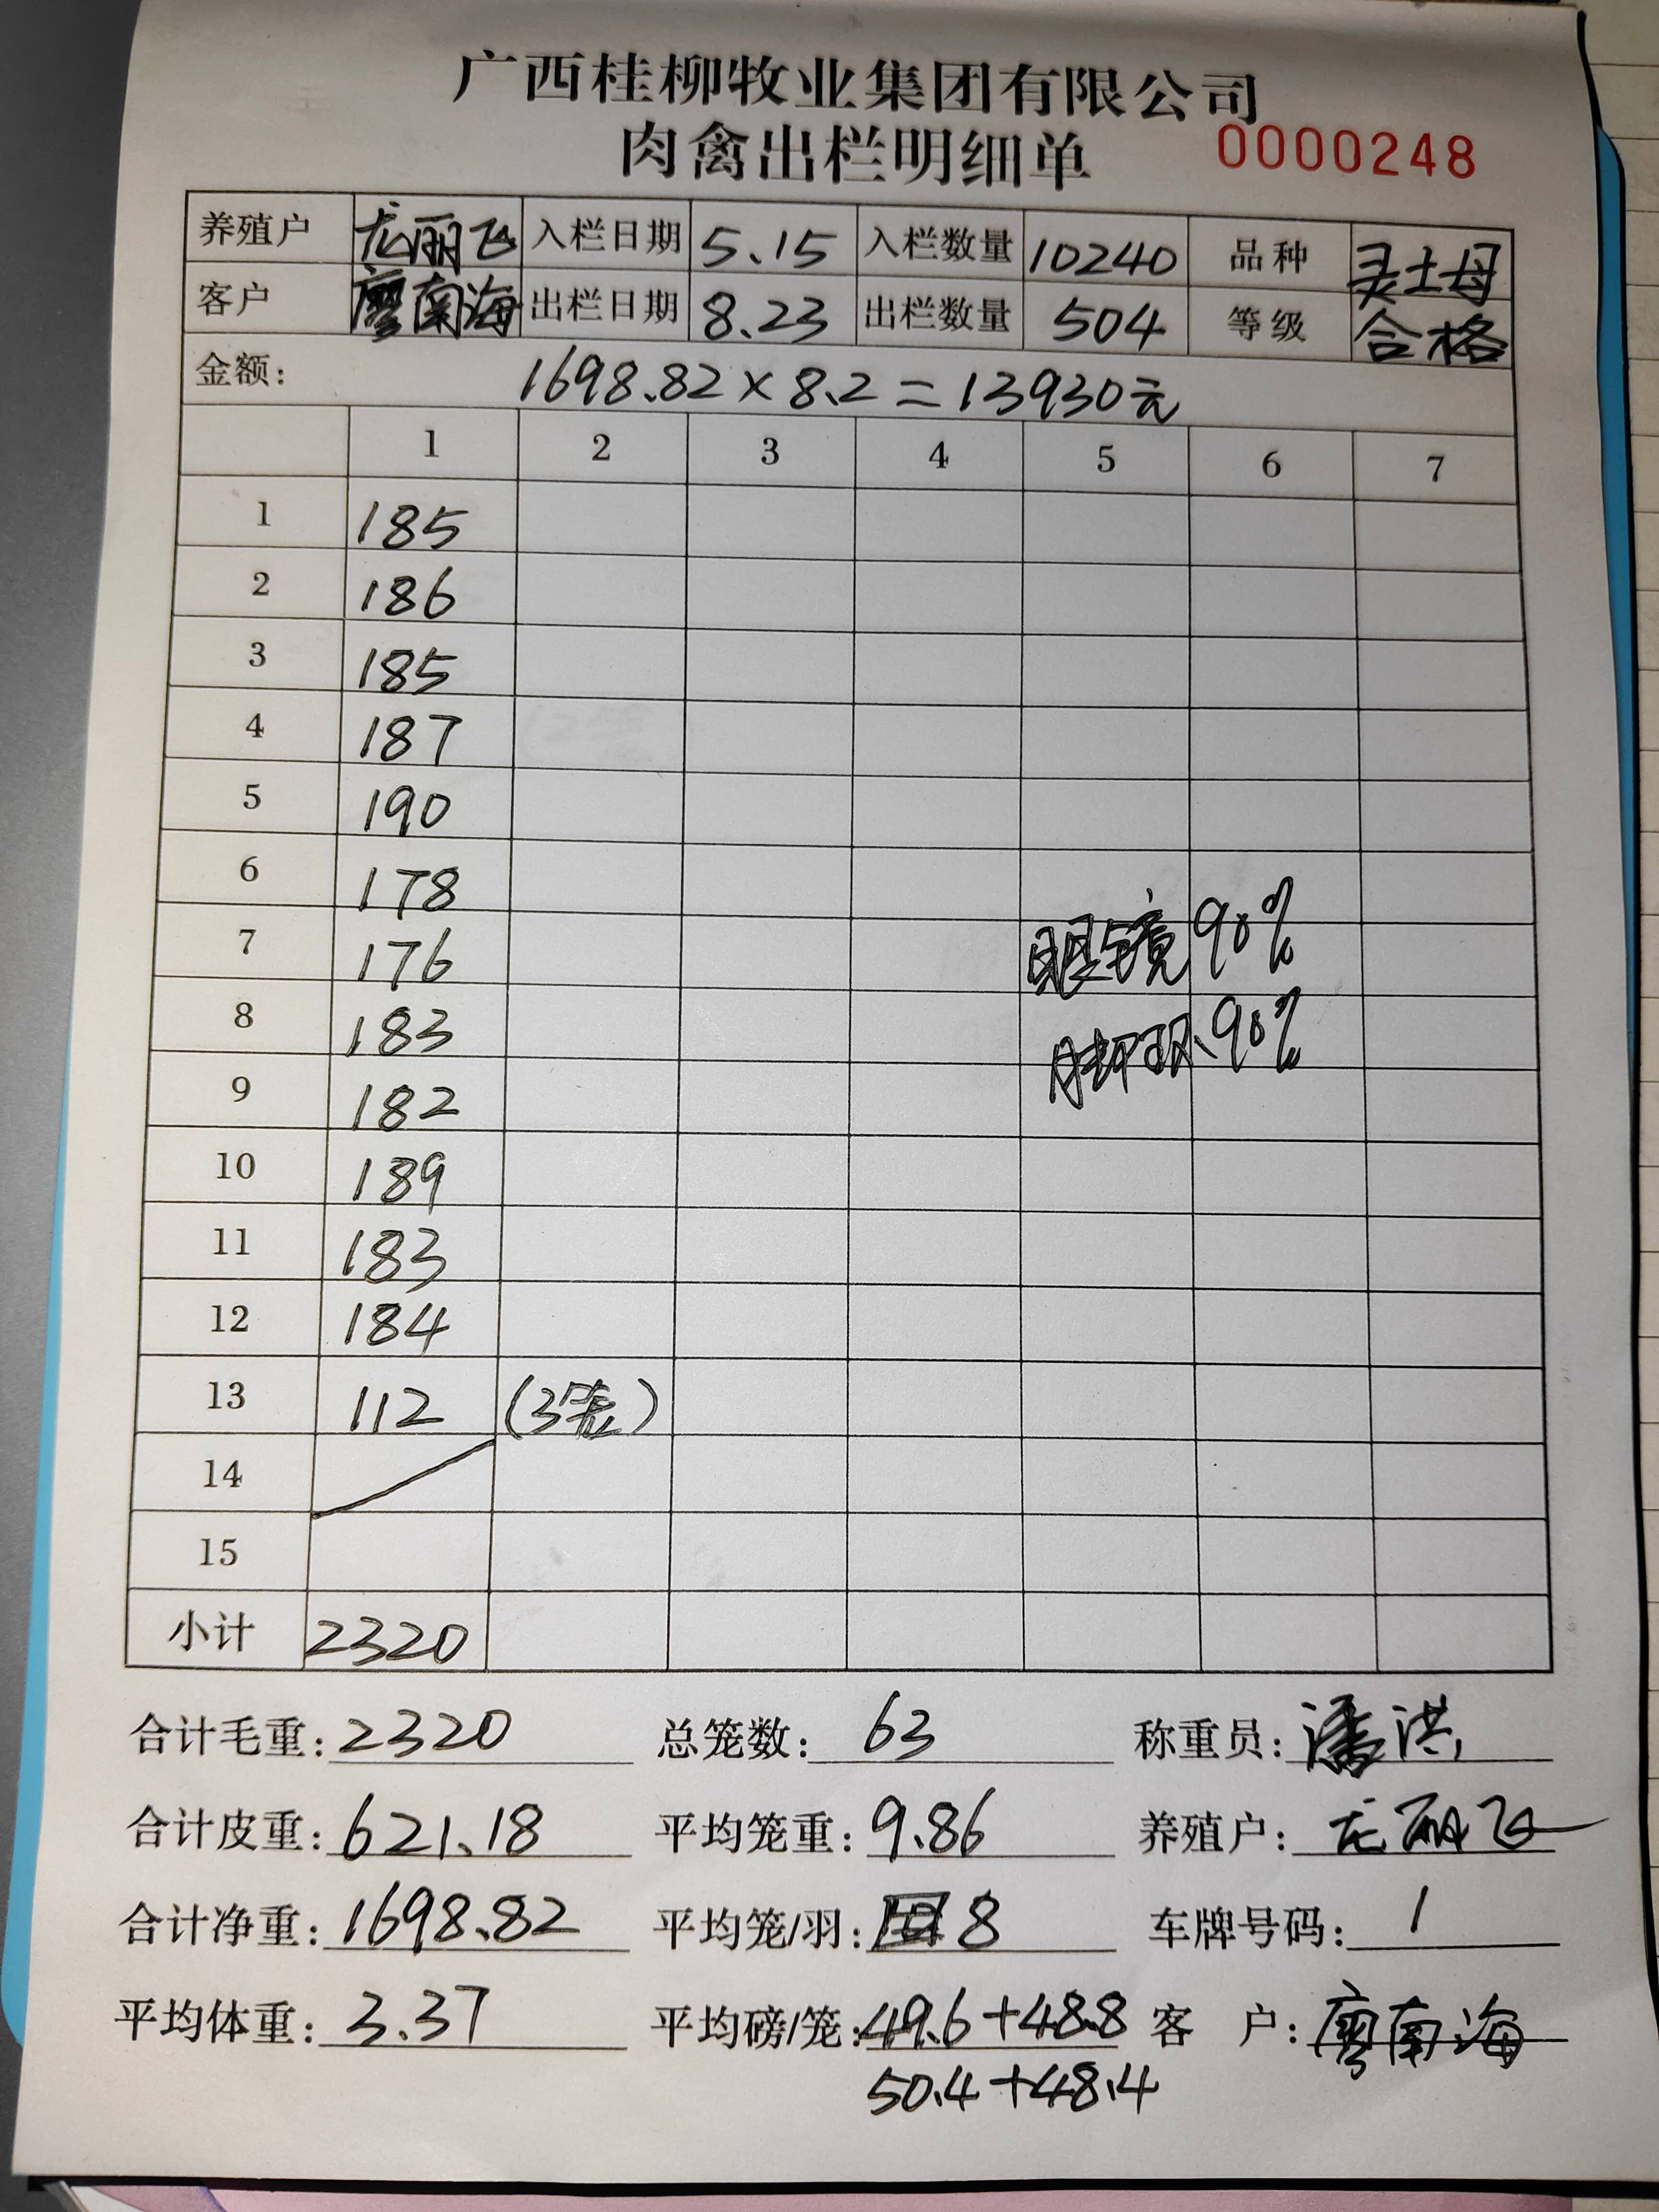 广西桂柳牧业集团有限公司
肉禽出栏明细单 0000248
养殖户 龙丽飞 入栏日期 5.15 入栏数量 10240 品种 灵土母
客户 廖南海 出栏日期 8.23 出栏数量 504 等级 合格
金额: 1698.82×8.2=13930元
1 2 3 4 5 6 7
1 185
2 186
3 185
4 187
5 190
6 178
7 176 眼镜90%
8 183 脚环90%
9 182
10 189
11 183
12 184
13 112 (3笼)
14
15
小计 2320
合计毛重: 2320 总笼数: 63 称重员: 潘洪
合计皮重: 621.18 平均笼重: 9.86 养殖户: 龙丽飞
合计净重: 1698.82 平均笼/羽: 8 车牌号码: 1
平均体重: 3.37 平均磅/笼: 49.6+48.8 客 户: 廖南海
50.4+48.4